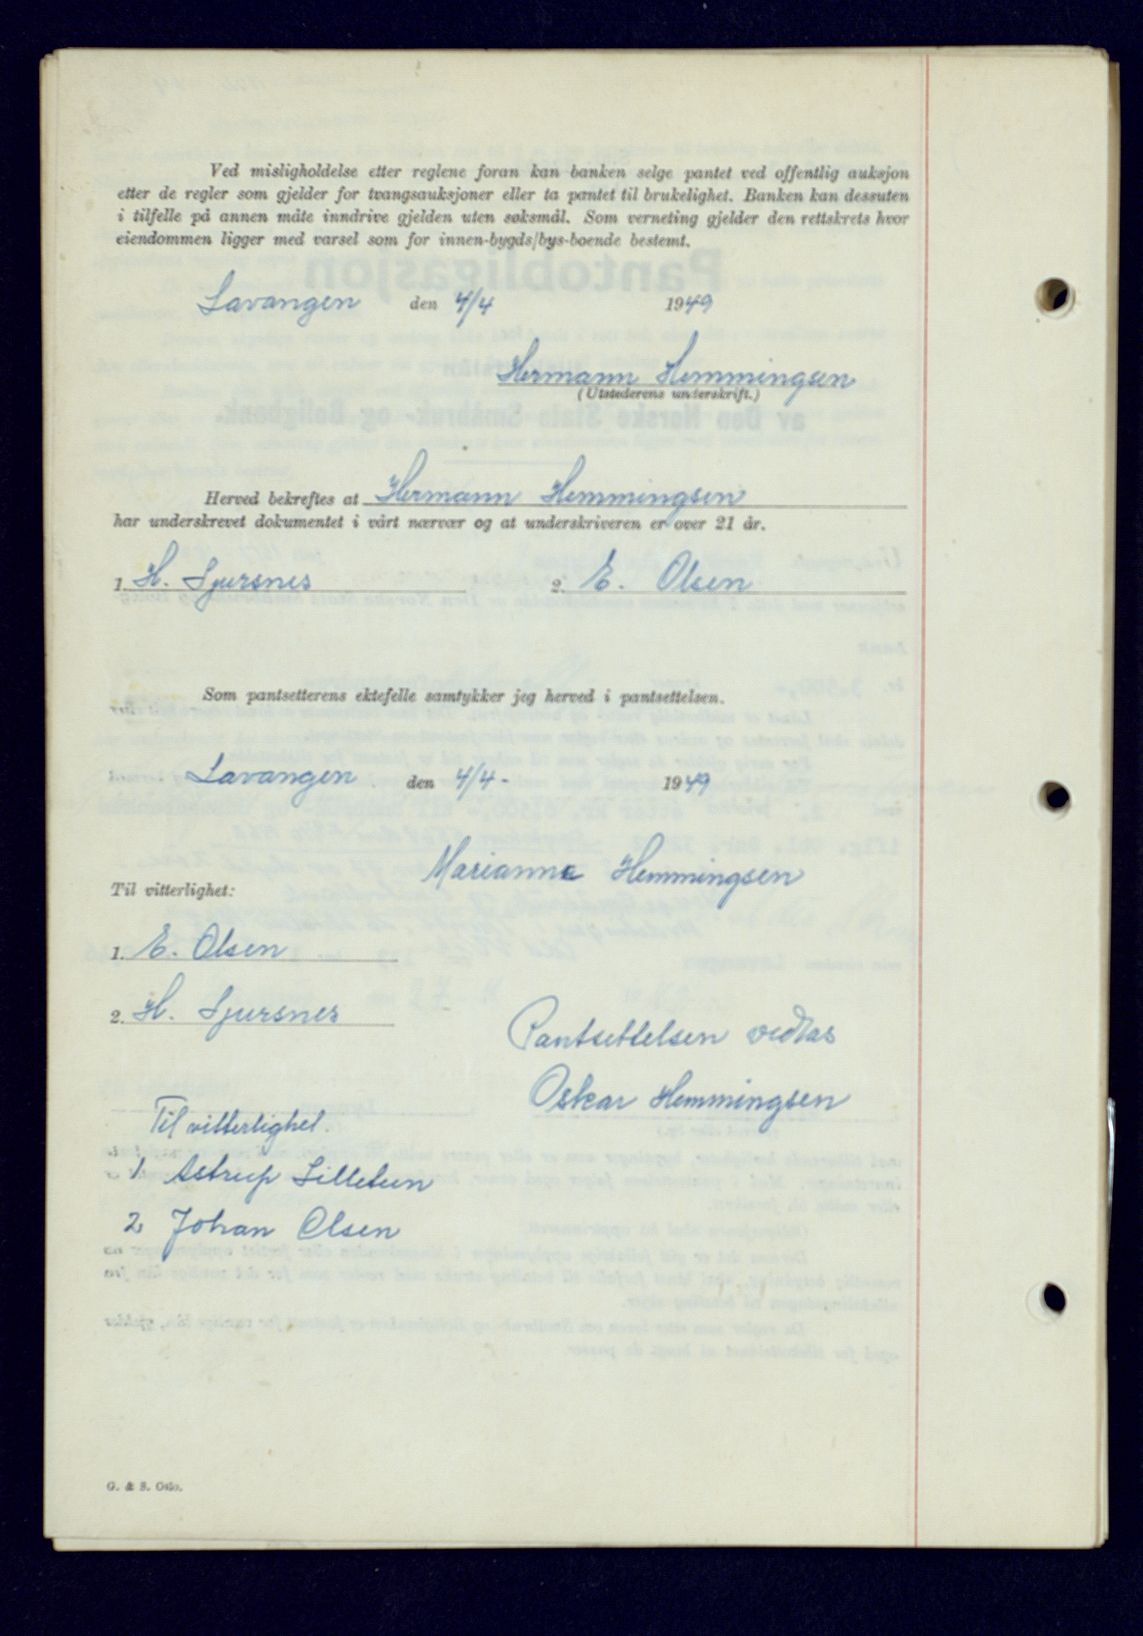 Ved misligholdelse etter reglene foran kan banken selge pantet ved offentlig auksjon
etter de regler som gjelder for tvangsauksjoner eller ta pantet til brukelighet. Banken kan dessuten
i tilfelle på annen måte inndrive gjelden uten søksmål. Som verneting gjelder den rettskrets hvor
eiendommen ligger med varsel som for innen-bygds/bys-boende bestemt.
Lavangen den 4/4 1949
Hermann Hemmingsen
(Utstederens underskrift.)
Herved bekreftes at Hermann Hemmingsen
har underskrevet dokumentet i vårt nærvær og at underskriveren er over 21 år.
1. H. Sjursnes 2. E. Olsen
Som pantsetterens ektefelle samtykker jeg herved i pantsettelsen.
Lavangen den 4/4 - 1949
Marianne Hemmingsen
Til vitterlighet:
1. E. Olsen
2. H. Sjursnes
Pantsettelsen vedtas
Oskar Hemmingsen
Til vitterlighet.
1 Astrup Lilletun
2 Johan Olsen
G. & S. Oslo.